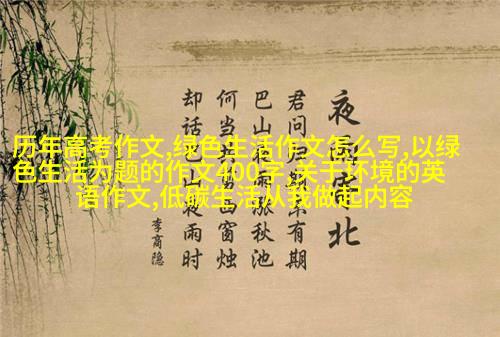 历年高考作文,绿色生活作文怎么写,以绿
色生活为题的作文400字,关于环境的英
语作文,低碳生活从我做起内容
夜北
君问归有期
巴山雨涨秋池
何当西窗烛
却话巴山夜雨时
李商隐